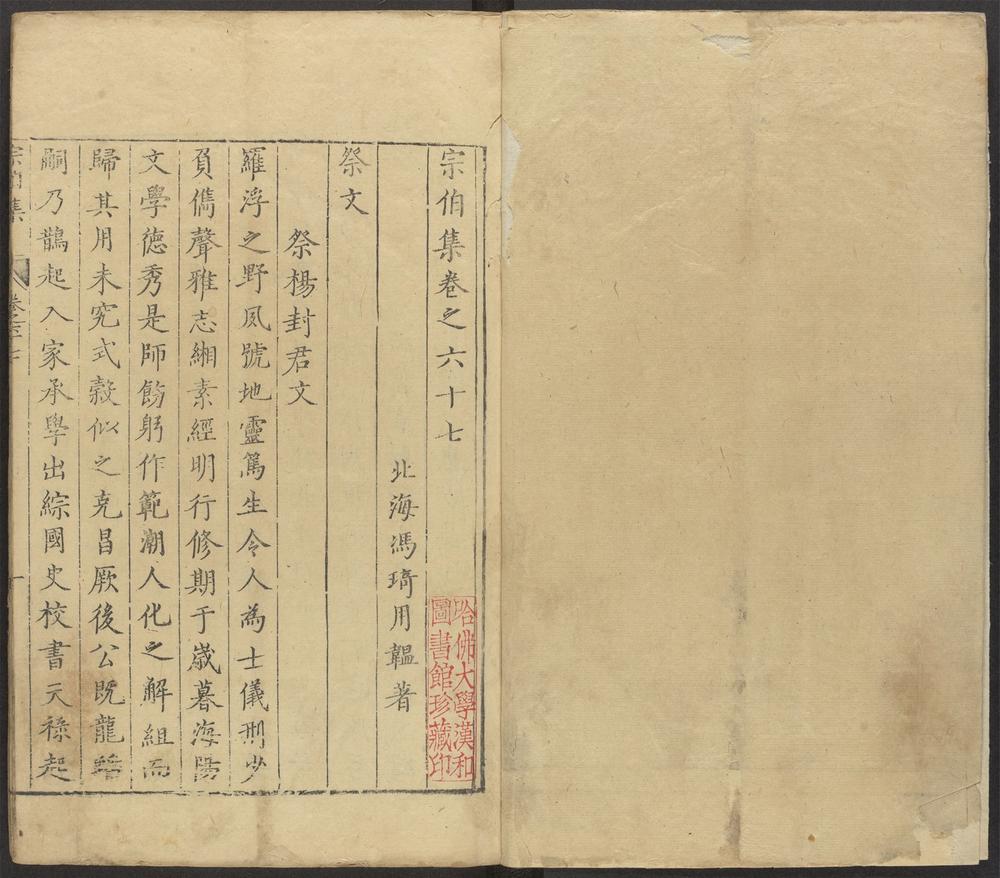 宗伯集卷之六十七
北海馮琦用韞著
哈佛大學漢和
圖書館珍藏印
祭文
祭楊封君文
羅浮之野夙號地靈篤生令人為士儀刑少
負儁聲雅志緗素經明行修期于歲暮海陽
文學德秀是師飭躬作範潮人化之解組而
歸其用未究式穀似之克昌厥後公既龍蟠
嗣乃鵲起入家承學出綜國史校書天祿起
宗伯集
卷之六十七